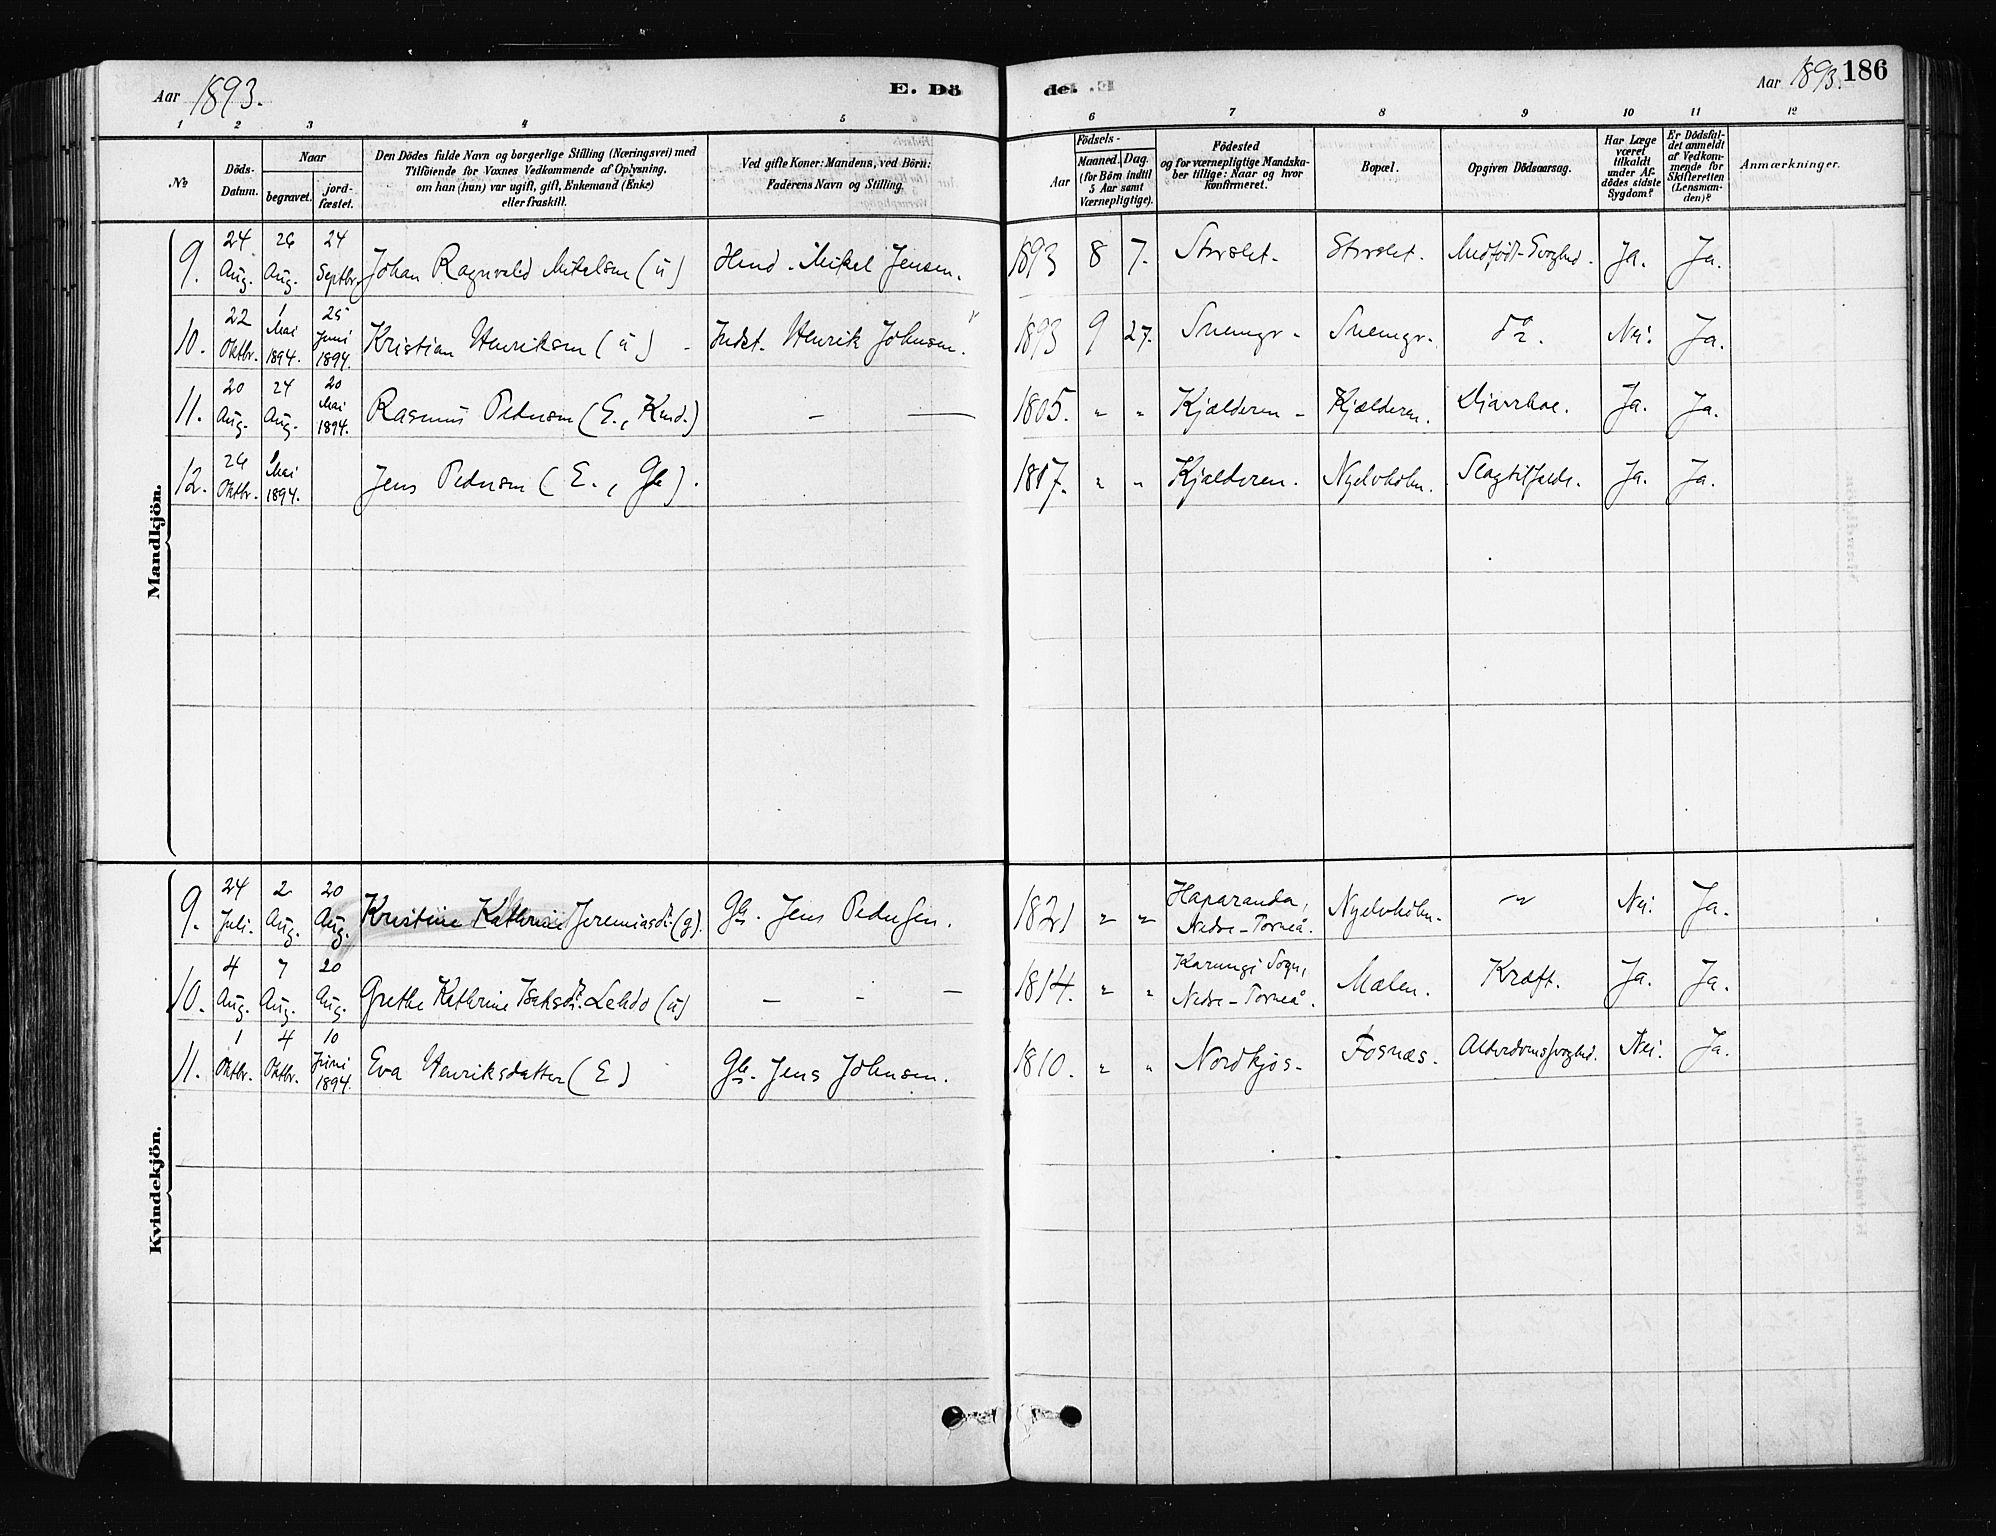 Aar 1893.
E. Dö
de. E
Aar 1893. 186
1 2 3 4 5 6 7 8 9 10 11 12
No
Döds-Datum.
Naar
begravet.
jord-fæstet.
Den Dödes fulde Navn og borgerlige Stilling (Næringsvei) med
Tilföiende for Voxnes Vedkommende af Oplysning,
om han (hun) var ugift, gift, Enkemand (Enke)
eller fraskilt.
Ved gifte Koner: Mandens, ved Börn:
Faderens Navn og Stilling.
Födsels-
Aar
Maaned. Dag.
(for Börn indtil
5 Aar samt
Værnepligtige).
Födested
og for værnepligtige Mandska-
ber tillige: Naar og hvor
konfirmeret.
Bopæl.
Opgiven Dödsaarsag.
Har Læge
været
tilkaldt
under Af-
dödes sidste
Sygdom?
Er Dödsfal-
det anmeldt
af Vedkom-
mende for
Skifteretten
(Lensman-
den)?
Anmærkninger.
Mandkjön.
9. 24 Aug. 26 Aug. 24 Septbr. Johan Ragnvald Mikelsen (u) Hmd. Mikel Jensen. 1893 8 7. Storslet. Storslet. Medfödt Svaghed. Ja. Ja.
10. 22 Oktbr. 1 Mai 1894. 25 Juni 1894. Kristian Henriksen (u) - Indst. Henrik Johnsen. 1893 9 27. Snemyr - Snemyr. do. Nei. Ja.
11. 20 Aug. 24 Aug. 20 Mai 1894. Rasmus Pedersen (E., Kmd.) — — 1805. " " Kjælderen - Kjælderen. Diarrhoe. Ja. Ja.
12. 26 Oktbr. 1 Mai 1894. Jens Pedersen (E., Gb). 1817. " " Kjælderen. Nyelvholm. Slagtilfælde. Ja. Ja.
Kvindekjön.
9. 24 Juli. 2 Aug. 20 Aug. Kristine Kathrine Jeremiasdr. (g). Gb. Jens Pedersen. 1821 " " Haparanda, Nedre-Torneå. Nyelvholm. " Nei. Ja.
10. 4 Aug. 7 Aug. 20 Aug. Grethe Kathrine Isaksdr. Lehdo (u) — - — 1814. " " Karungi Sogn, Nedre-Torneå. Malen. Kræft. Ja. Ja.
11. 1 Oktbr. 4 Oktbr. 10 Juni 1894. Eva Henriksdatter (E) Gb. Jens Johnsen. 1810. " " Nordkjos - Fosnæs. Alderdomssvaghed. Nei. Ja.